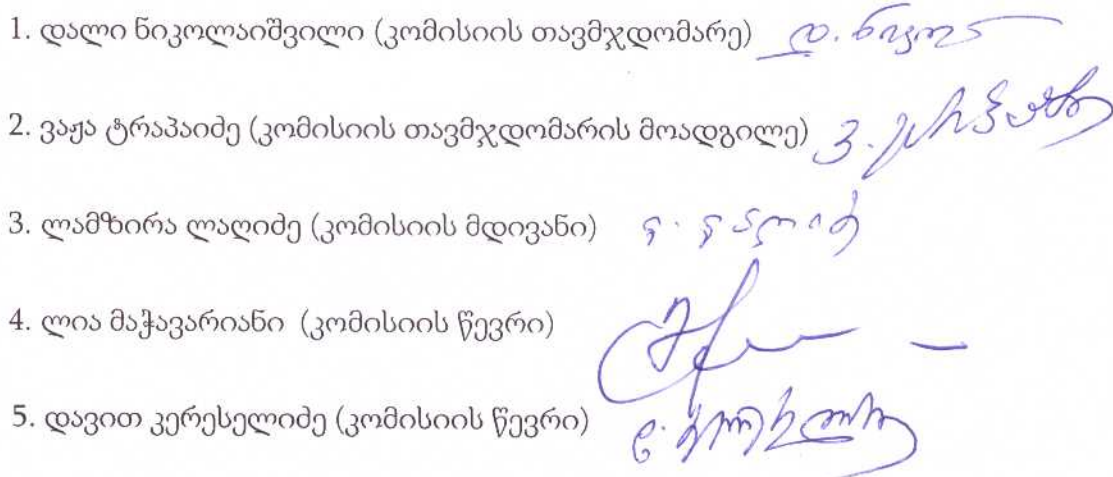 1. დალი ნიკოლაიშვილი (კომისიის თავმჯდომარე) დ. ნიკოლ
2. ვაჟა ტრაპაიძე (კომისიის თავმჯდომარის მოადგილე) ვ.
3. ლამზირა ლაღიძე (კომისიის მდივანი)
4. ლია მაჭავარიანი (კომისიის წევრი)
5. დავით კერესელიძე (კომისიის წევრი) დ.